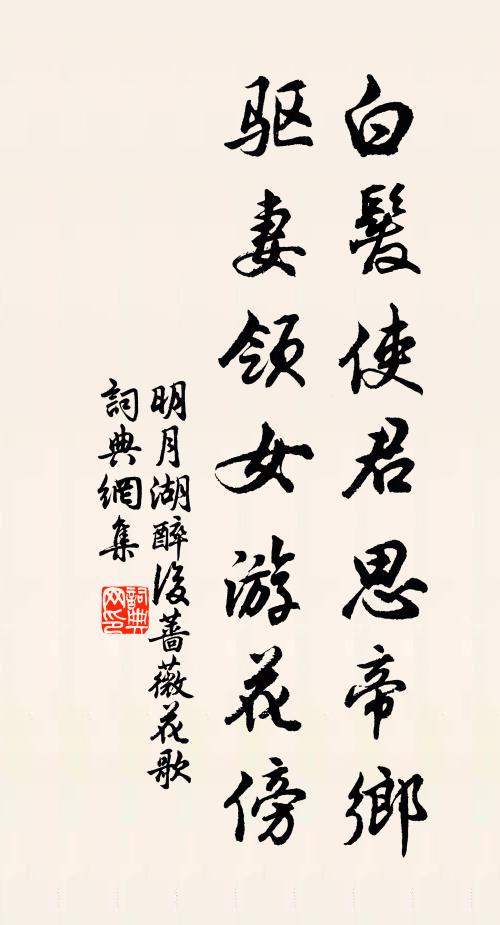 白髮使君思帝鄉
驱妻領女游花傍
明月湖醉後薔薇花歌
詞典網集
詞典
网印